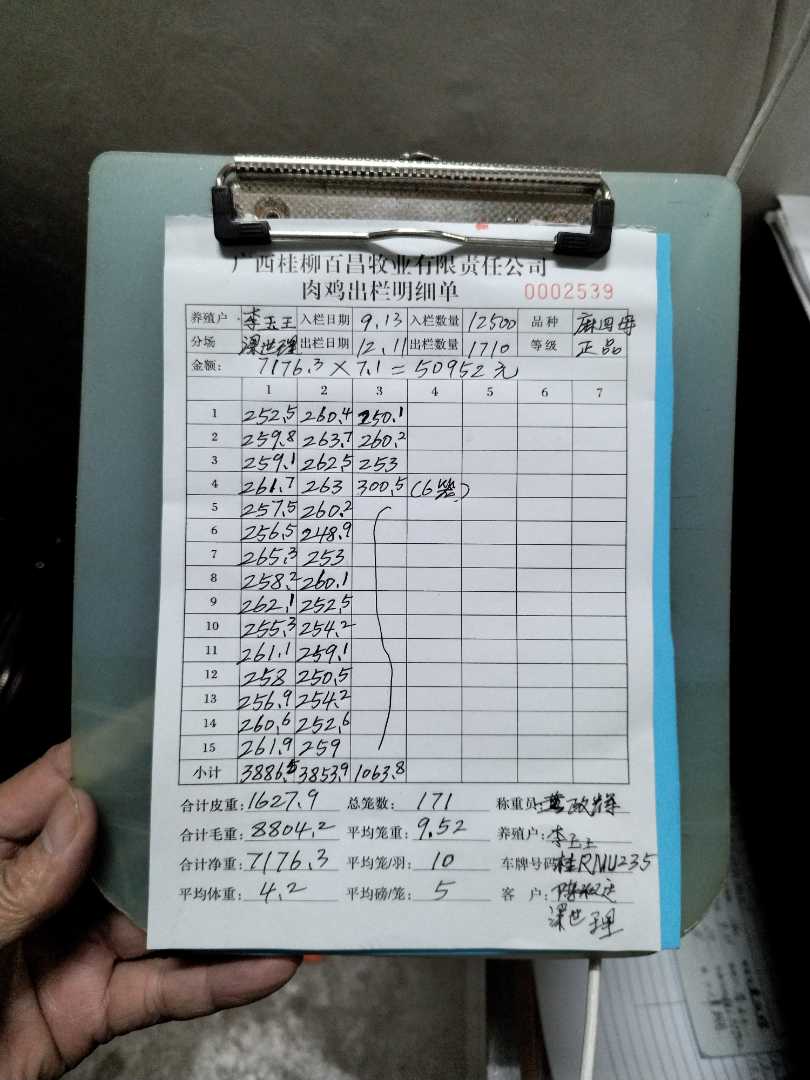 广西桂柳百昌牧业有限责任公司
肉鸡出栏明细单 0002539
养殖户 李玉王 入栏日期 9.13 入栏数量 12500 品种 麻四母
分场 梁世理 出栏日期 12.11 出栏数量 1710 等级 正品
金额: 7176.3×7.1=50952元
1 2 3 4 5 6 7
1 252.5 260.4 250.1
2 259.8 263.7 260.2
3 259.1 262.5 253
4 261.7 263 300.5 (6笼)
5 257.5 260.2
6 256.5 248.9
7 265.3 253
8 258.2 260.1
9 262.1 252.5
10 255.3 254.2
11 261.1 259.1
12 258 250.5
13 256.9 254.2
14 260.6 252.6
15 261.9 259
小计 3886.5 3853.9 1063.8
合计皮重: 1627.9 总笼数: 171 称重员:
合计毛重: 8804.2 平均笼重: 9.52 养殖户: 李玉王
合计净重: 7176.3 平均笼/羽: 10 车牌号码: 桂RMU235
平均体重: 4.2 平均磅/笼: 5 客户:
梁世理